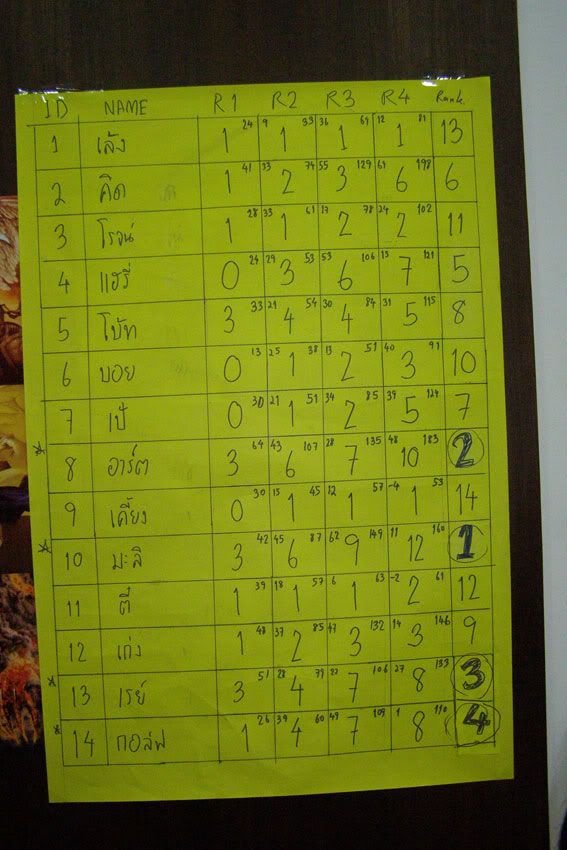 ID NAME R1 R2 R3 R4 Rank
1 เล้ง 1 24 9 1 33 36 1 69 12 1 81 13
2 คิด 1 41 33 2 74 55 3 129 69 6 198 6
3 โรจน์ 1 28 33 1 61 17 2 78 24 2 102 11
4 แฮรี่ 0 24 29 3 53 53 6 106 15 7 121 5
5 โบ้ท 3 33 21 4 54 30 4 84 31 5 115 8
6 บอย 0 13 25 1 38 13 2 51 40 3 91 10
7 เป้ 0 30 21 1 51 34 2 85 39 5 124 7
8 อาร์ต 3 64 43 6 107 28 7 135 48 10 183 2
9 เคี้ยง 0 30 15 1 45 12 1 57 -4 1 53 14
10 มะลิ 3 42 45 6 87 62 9 149 11 12 160 1
11 ตี๋ 1 39 18 1 57 6 1 63 -2 2 61 12
12 เก่ง 1 48 37 2 85 47 3 132 14 3 146 9
13 เรย์ 3 51 28 4 79 27 7 106 27 8 133 3
14 กอล์ฟ 1 26 39 4 60 49 7 109 1 8 110 4